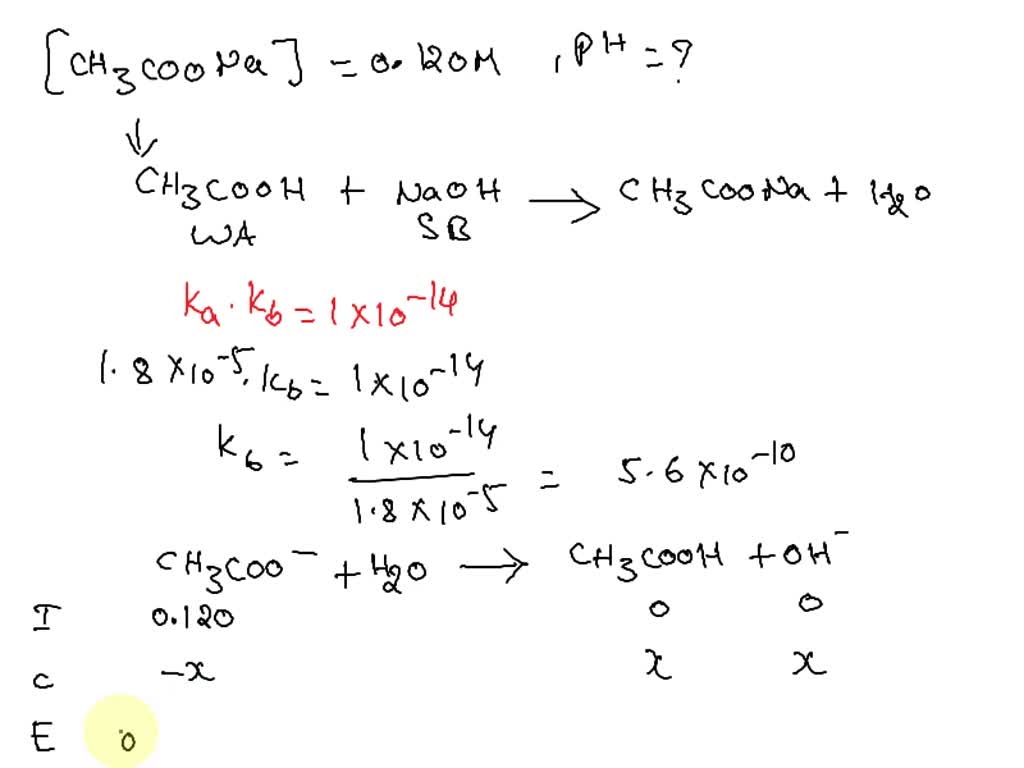 [CH3COONa] = 0.120M , PH = ?
CH3COOH + NaOH → CH3COONa + H2O
WA SB
Ka · Kb = 1 × 10^-14
1.8 × 10^-5 · Kb = 1 × 10^-14
Kb = 1 × 10^-14 / 1.8 × 10^-5 = 5.6 × 10^-10
CH3COO^- + H2O → CH3COOH + OH^-
I 0.120 0 0
C -x x x
E 0